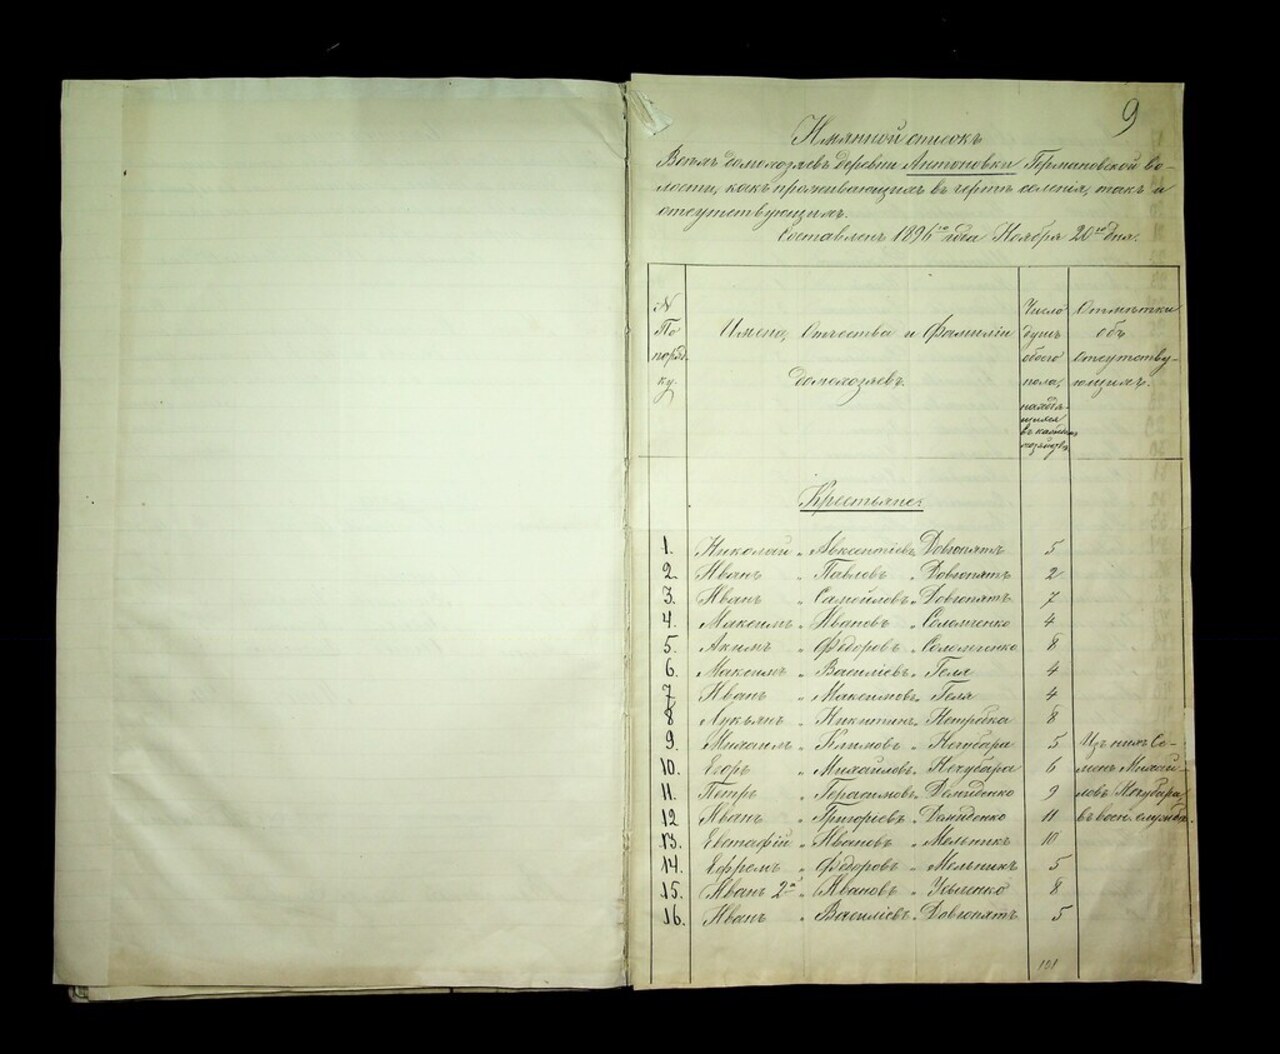 9
Имянной списокъ
Всѣмъ домохозяевъ деревни Антоновки Германовской во-
лости, какъ проживающихъ въ чертѣ селенія, такъ и
отсутствующихъ.
Составленъ 1896го года Ноября 20го дня.
N По поряд- ку.
Имена, Отчества и Фамиліи домохозяевъ.
Число душъ обоего пола,
Отмѣтки объ отсутству- ющихъ.
Крестьяне:
1. Николай " Авксентіевъ " Довгопятъ 5
2. Иванъ " Павловъ " Довгопятъ 2
3. Иванъ " Самойловъ " Довгопятъ 7
4. Максимъ " Ивановъ " Соломченко 4
5. Акимъ " Ѳедоровъ " Соломченко 8
6. Максимъ " Василіевъ " Геля 4
7 Иванъ " Максимовъ " Геля 4
8 Лукьянъ " Никитинъ " Нетребка 8
9. Михаилъ " Климовъ " Нечубара 5 Изъ нихъ Се-
10. Егоръ " Михайловъ " Нечубара 6 менъ Михай-
11. Петръ " Герасимовъ " Демиденко 9 ловъ Нечубара,
12 Иванъ " Григоріевъ " Демиденко 11 въ воен. службѣ.
13. Евстафій " Ивановъ " Мельникъ 10
14. Ефремъ " Ѳедоровъ " Мельникъ 5
15. Иванъ 2й " Ивановъ " 8
16. Иванъ " Василіевъ " Довгопятъ 5
101